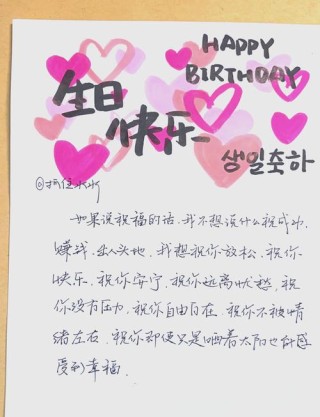 HAPPY
BIRTHDAY
生日
快乐
생일축하
如果说祝福的话,我不想说什么祝成功,
赚钱,出人头地,我想祝你放松,祝你
快乐,祝你安宁,祝你远离忧愁,祝
你没有压力,祝你自由自在,祝你不被情
绪左右,祝你即便只是晒着太阳也能感
受到幸福.